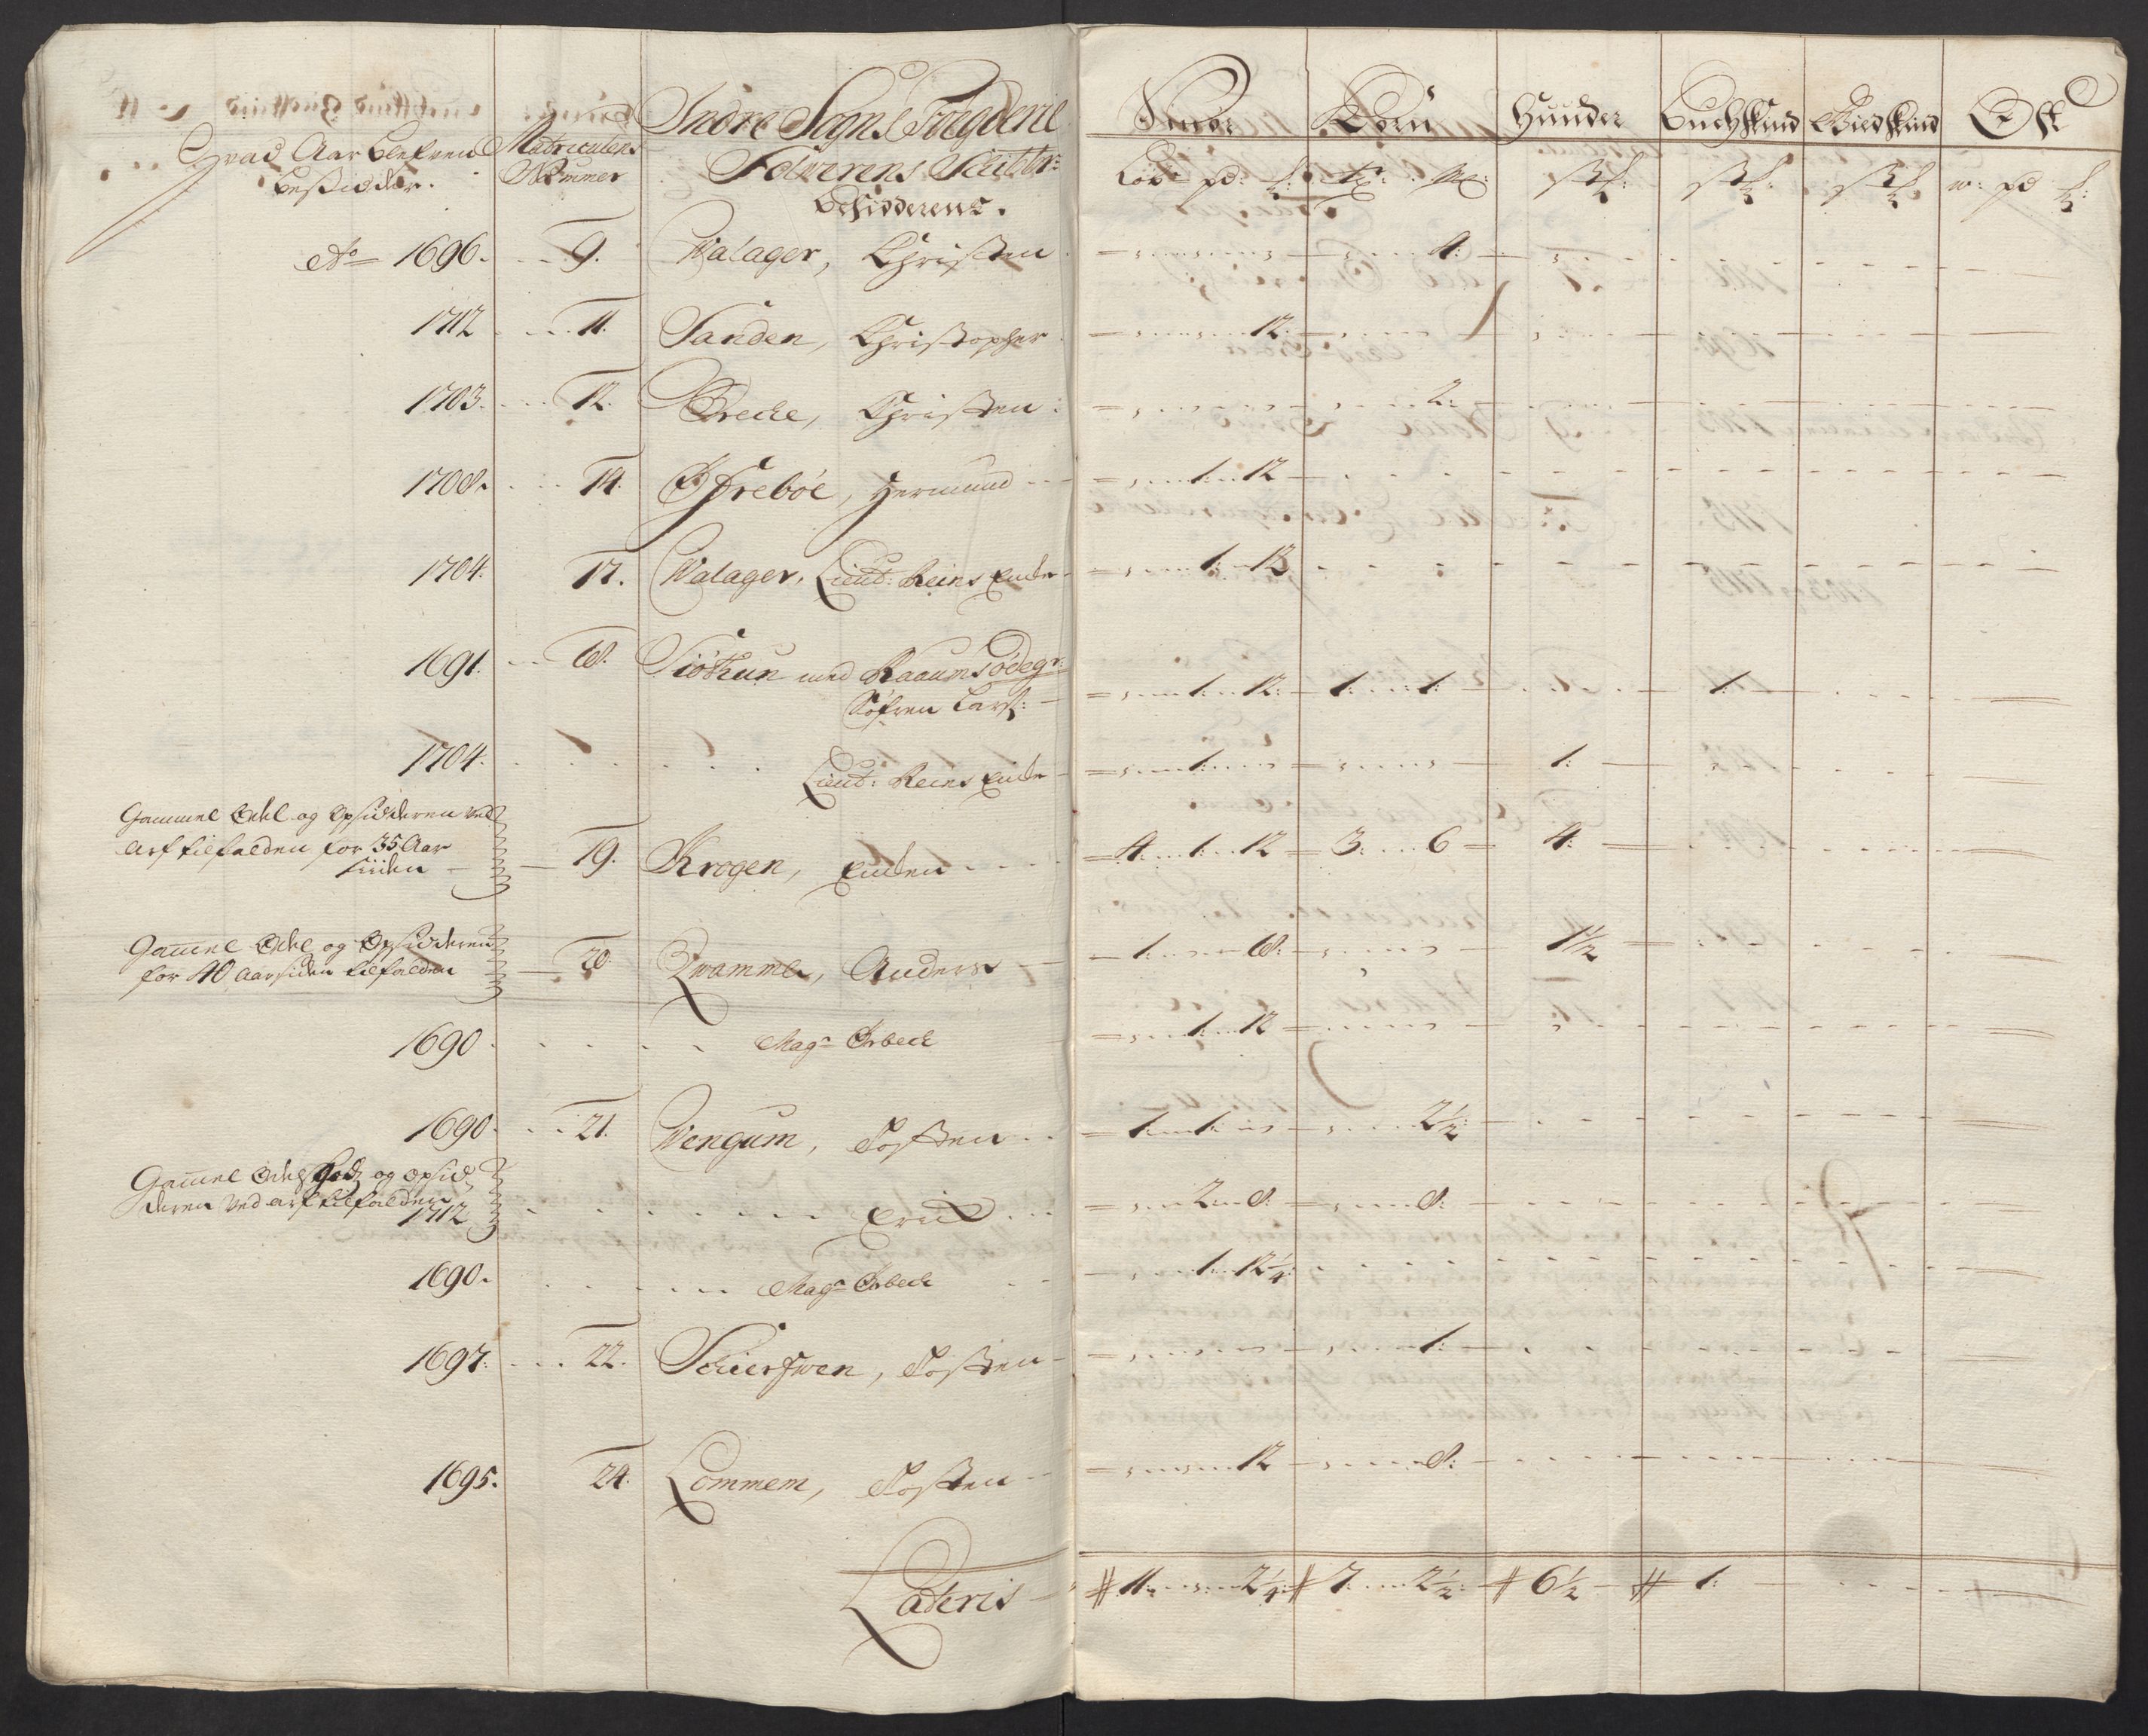 Hvad Aar blefven Besidder. Matriculens Nummer Indre Sogns Fougderie Solverens Skibbr: Besidderens. Smör Korn Huuder Buchskind Giedskind Ost
Löb: pd: w: pd
Ao 1696. 9. Walager, Christen 4:
1712 11. Sanden, Christopher 12:
1703. 12. Brecke, Christen 2:
1708. 14. Öfreböe, Hermund 1: 12
1704. 17. Walager, Lieut: Reins Encke 1: 12
1691. 18. Siöthun med Raaum södegr:
Söfren Lars: 1: 12: 1: 1: 1:
1704. Lieut: Reins Encke 1: 1:
Gammel Odel og Opsidderen ved
arf tilfalden for 35 Aar
siiden 19. Krogen, Enden 4: 1: 12 3: 6 4:
Gammel Odel og Opsidderen
for 40 Aar siden tilfalden 20. Qvamme, Anders 1: 18: 1½
1690 Magr Orbeck 1: 12
1690. 21. Wengum, Joften 1: 1: 2½:
Gammel Odels Gods og opsid
deren ved arf tilfalden
1712 Erich 2: 8: 8:
1690. Magr Orbeck 1: 12¼:
1697: 22. Schierfwen, Joften 1:
1695. 24. Lommem, Joften 12 8:
Lateris # 11: 2¼: # 7: 2½: # 6½ # 1: